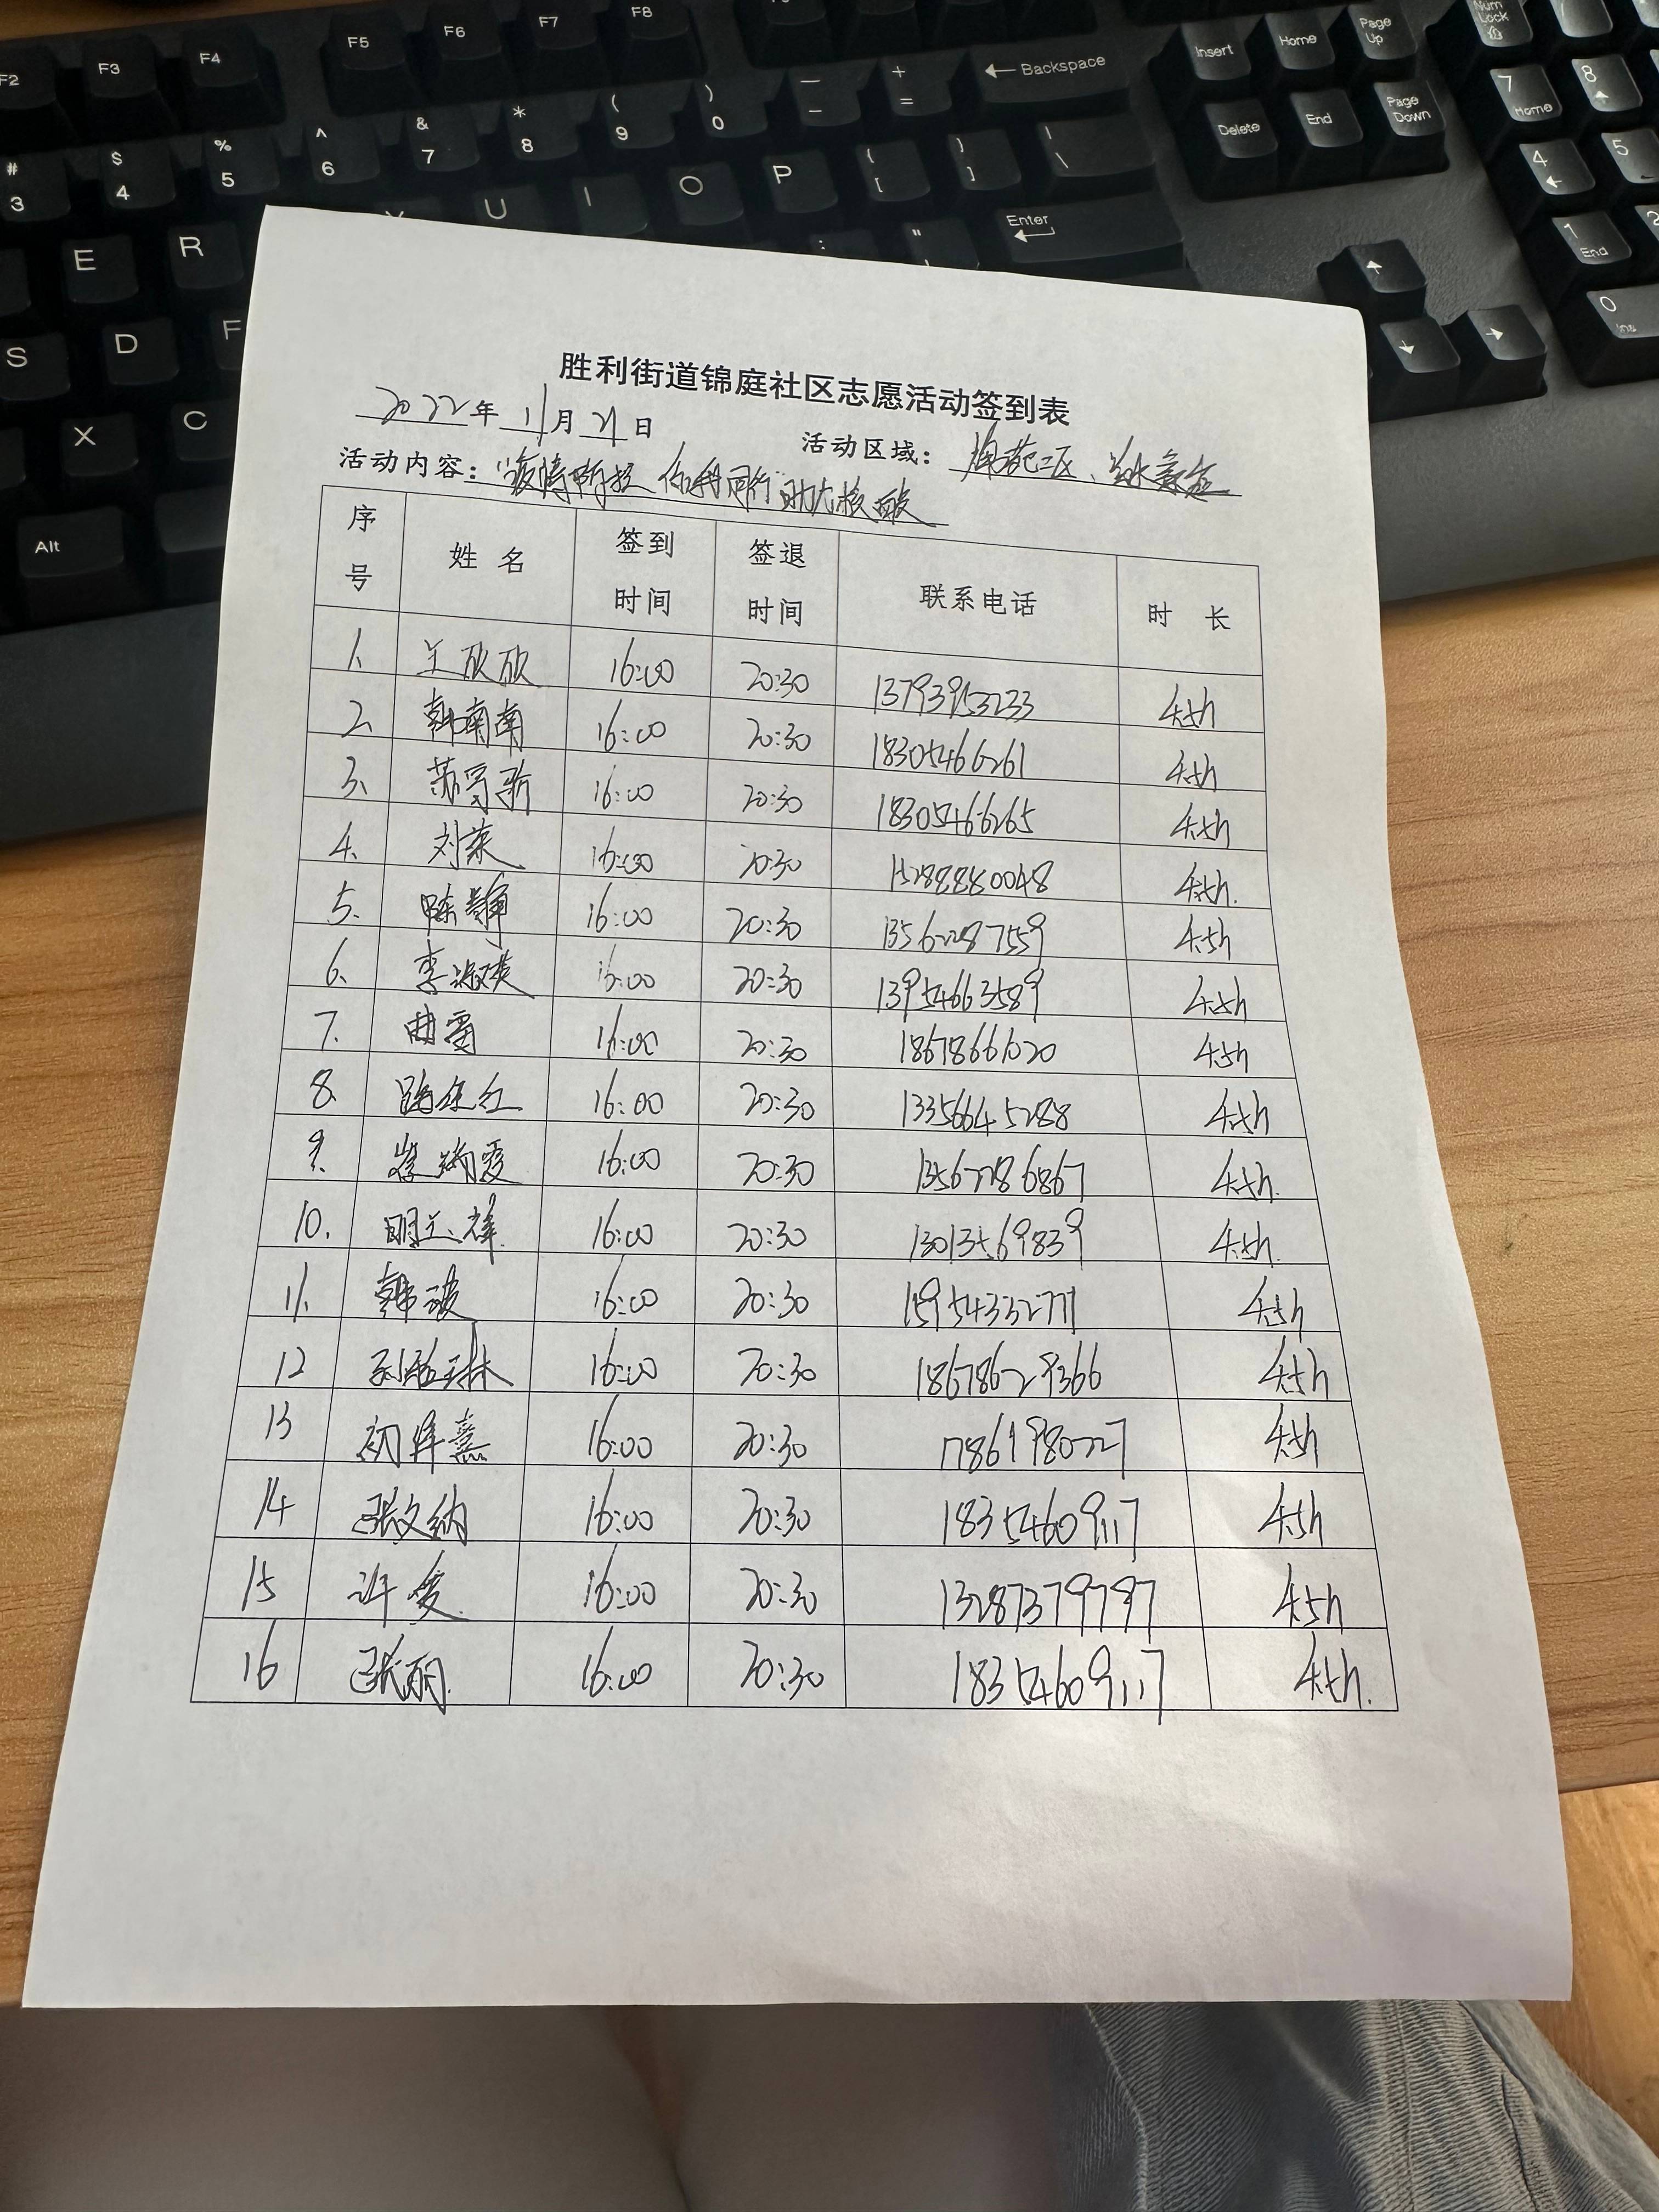 F2 F3 F4 F5 F6 F7 F8
Insert Home Page Up Num Lock
← Backspace
Delete End Page Down 7 Home 8
# 3 $ 4 % 5 ^ 6 & 7 * 8 ( 9 ) 0 — - + =
E R U I O P { [ } ] | \
4 5
Enter
1 End 2
S D F : "
0 Ins
X C
Alt
胜利街道锦庭社区志愿活动签到表
2022年 11月 21日 活动区域：
活动内容："疫情防控 你我同行"助力核酸
序号 姓 名 签到时间 签退时间 联系电话 时 长
1. 王欣欣 16:00 20:30 13793953233 4.5h
2. 韩南南 16:00 20:30 18305466261 4.5h
3. 16:00 20:30 18305466265 4.5h
4. 刘荣 16:00 20:30 15288880048 4.5h.
5. 陈静 16:00 20:30 13562287559 4.5h
6. 李淑英 16:00 20:30 13954663589 4.5h
7. 曲雪 16:00 20:30 18678666020 4.5h
8. 16:00 20:30 13356645288 4.5h
9. 崔炳霞 16:00 20:30 13562286867 4.5h.
10. 明立祥. 16:00 20:30 13013569839 4.5h.
11. 韩波 16:00 20:30 15954332771 4.5h
12 16:00 20:30 18678629366 4.5h
13 16:00 20:30 17861980227 4.5h
14 张文纳 16:00 20:30 18354609117 4.5h
15 许爱 16:00 20:30 13287379797 4.5h
16 张丽. 16:00 20:30 18354609117 4.5h.